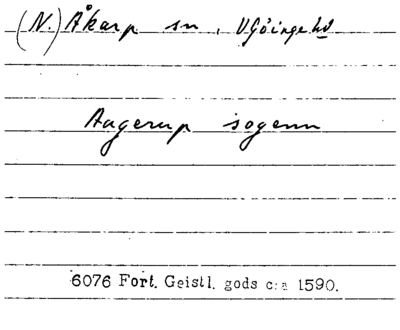 (N.) Åkarp sn, V Göinge hd
Aagerup sogenn
6076 Fort. Geistl. gods c:a 1590.